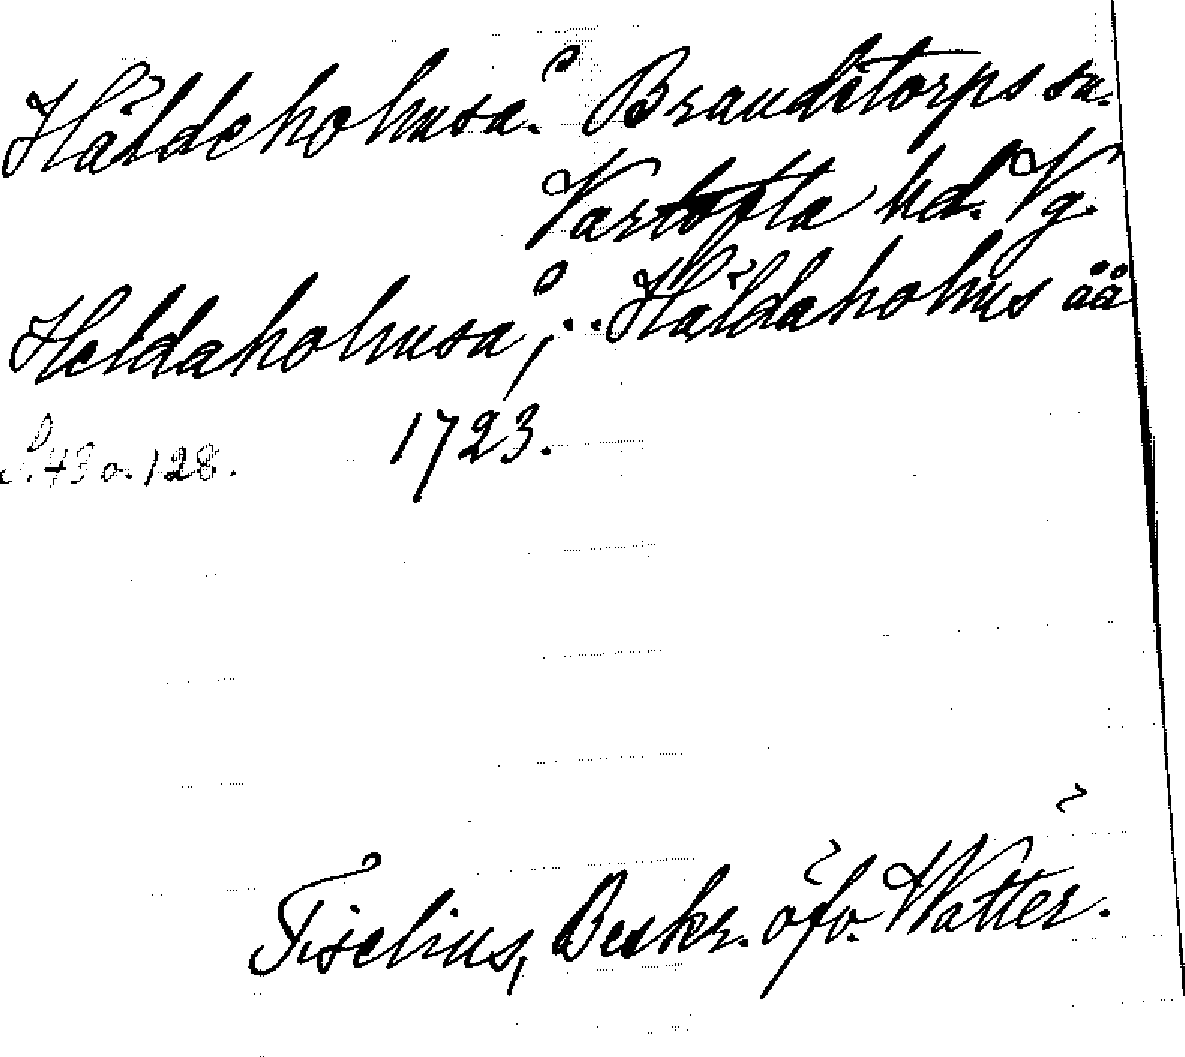 Häldeholmså. Brandstorps sn.
Vartofta hd. Vg.
Heldaholmså, .. Häldaholms åå
1723.
S. 43 o. 128.
Tiselius, Beskr. öfv. Wätter.